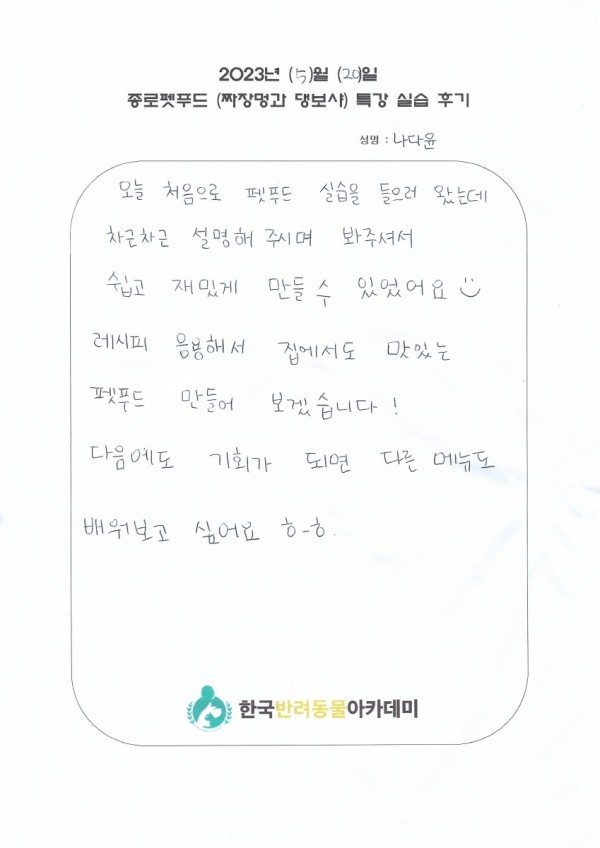 2023년 (5)월 (20)일
종로펫푸드 (짜장멍과 댕보샤) 특강 실습 후기
성명 : 나다윤
오늘 처음으로 펫푸드 실습을 들으러 왔는데
차근차근 설명해 주시며 봐주셔서
쉽고 재밌게 만들 수 있었어요 :)
레시피 응용해서 집에서도 맛있는
펫푸드 만들어 보겠습니다!
다음에도 기회가 되면 다른 메뉴도
배워보고 싶어요 ㅎ-ㅎ
한국반려동물아카데미